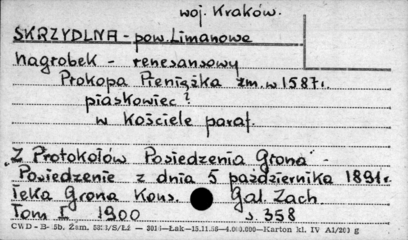 woj. Kraków.
SKRZYDLNA - pow. Limanowa
nagrobek - renesansowy
Prokopa Pieniążka zm. w 1587 r.
piaskowiec?
w kościele paraf.
"Z Protokołów Posiedzenia Grona" -
Posiedzenie z dnia 5 października 1891 r.
Teka Grona Kons. Gal. Zach.
Tom I 1900 s. 358
CWD - B-15b. Zam.